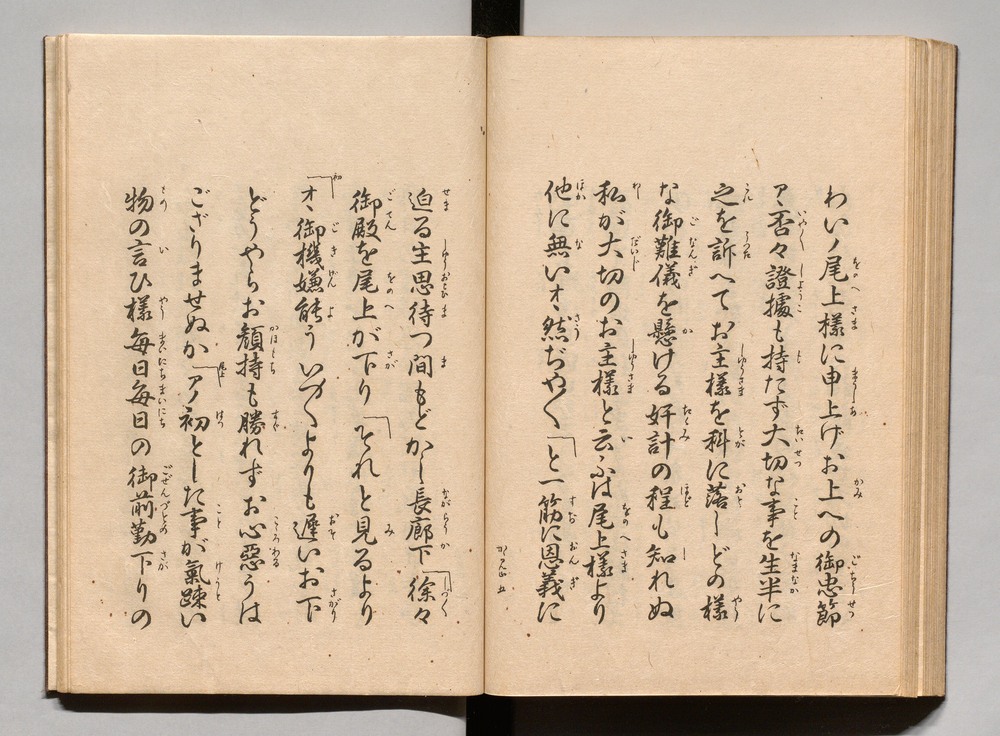 わいノ尾上樣に申上げお上への御忠節
アヽ否々證據も持たず大切な事を生半に
之を訴へてお主樣を科に落しどの樣
な御難儀を懸ける奸計の程も知れぬ
私が大切のお主樣と云ふは尾上樣より
他に無いオヽ然ぢや〱「と一筋に恩義に
迫る主思待つ間もどかし長廊下「徐々
御殿を尾上が下り「それと見るより
「オヽ御機嫌能ういつ〱よりも遲いお下
どうやらお顏持も勝れずお心惡うは
ござりませぬか「アノ初とした事が氣疎い
物の言ひ樣每日每日の御前勤下りの